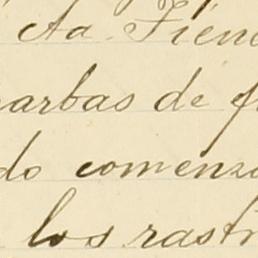 Ada. Fiene
barbas de f
do comenza
los rastr